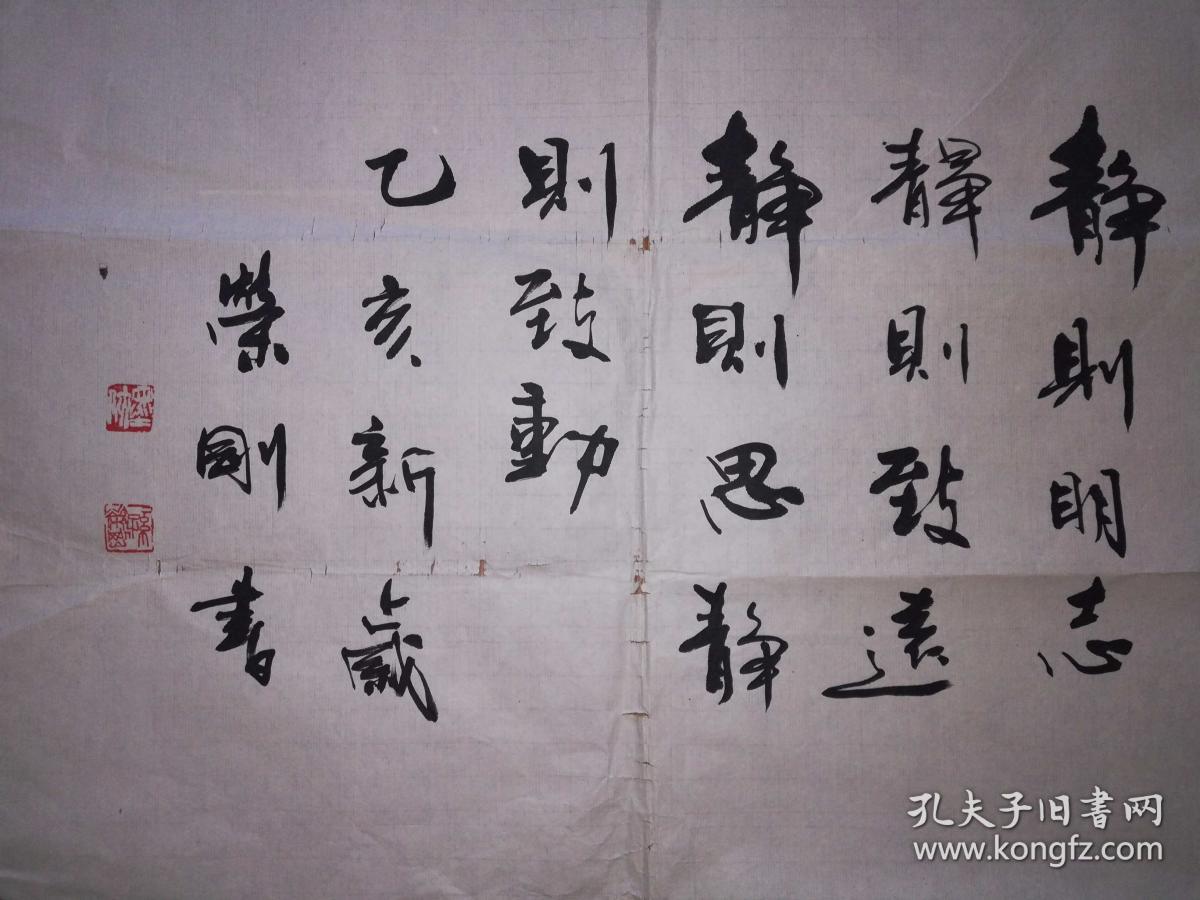 静則明志
靜則致遠
静則思静
則致動
乙亥新歲
榮剛書
孔夫子旧書网
www.kongfz.com